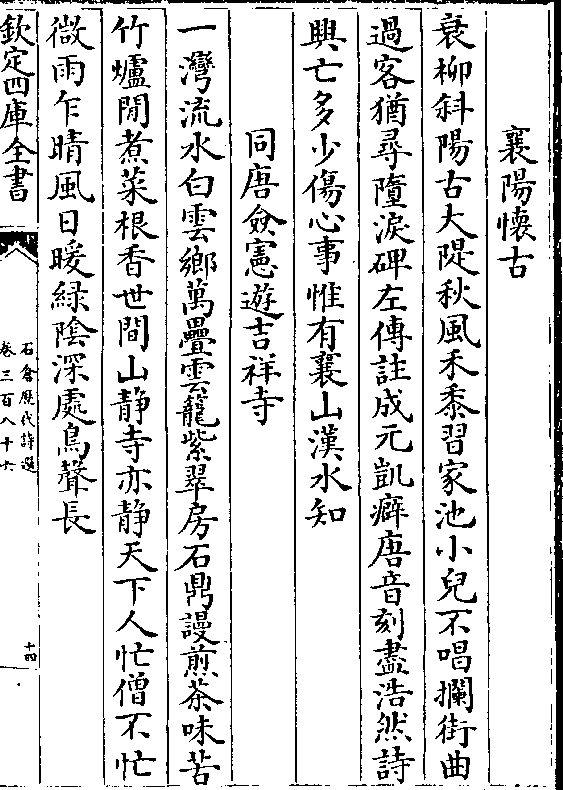 襄陽懷古
衰柳斜陽古大隄秋風禾黍習家池小兒不唱攔街曲
過客猶尋墮淚碑左傳註成元凱癖唐音刻盡浩然詩
興亡多少傷心事惟有襄山漢水知
同唐僉憲遊吉祥寺
一灣流水白雲鄉萬疊雲籠紫翠房石鼎謾煎茶味苦
竹爐閒煮菜根香世間山静寺亦静天下人忙僧不忙
微雨乍晴風日暖緑陰深處鳥聲長
欽定四庫全書
石倉歷代詩選
卷三百八十六
十四